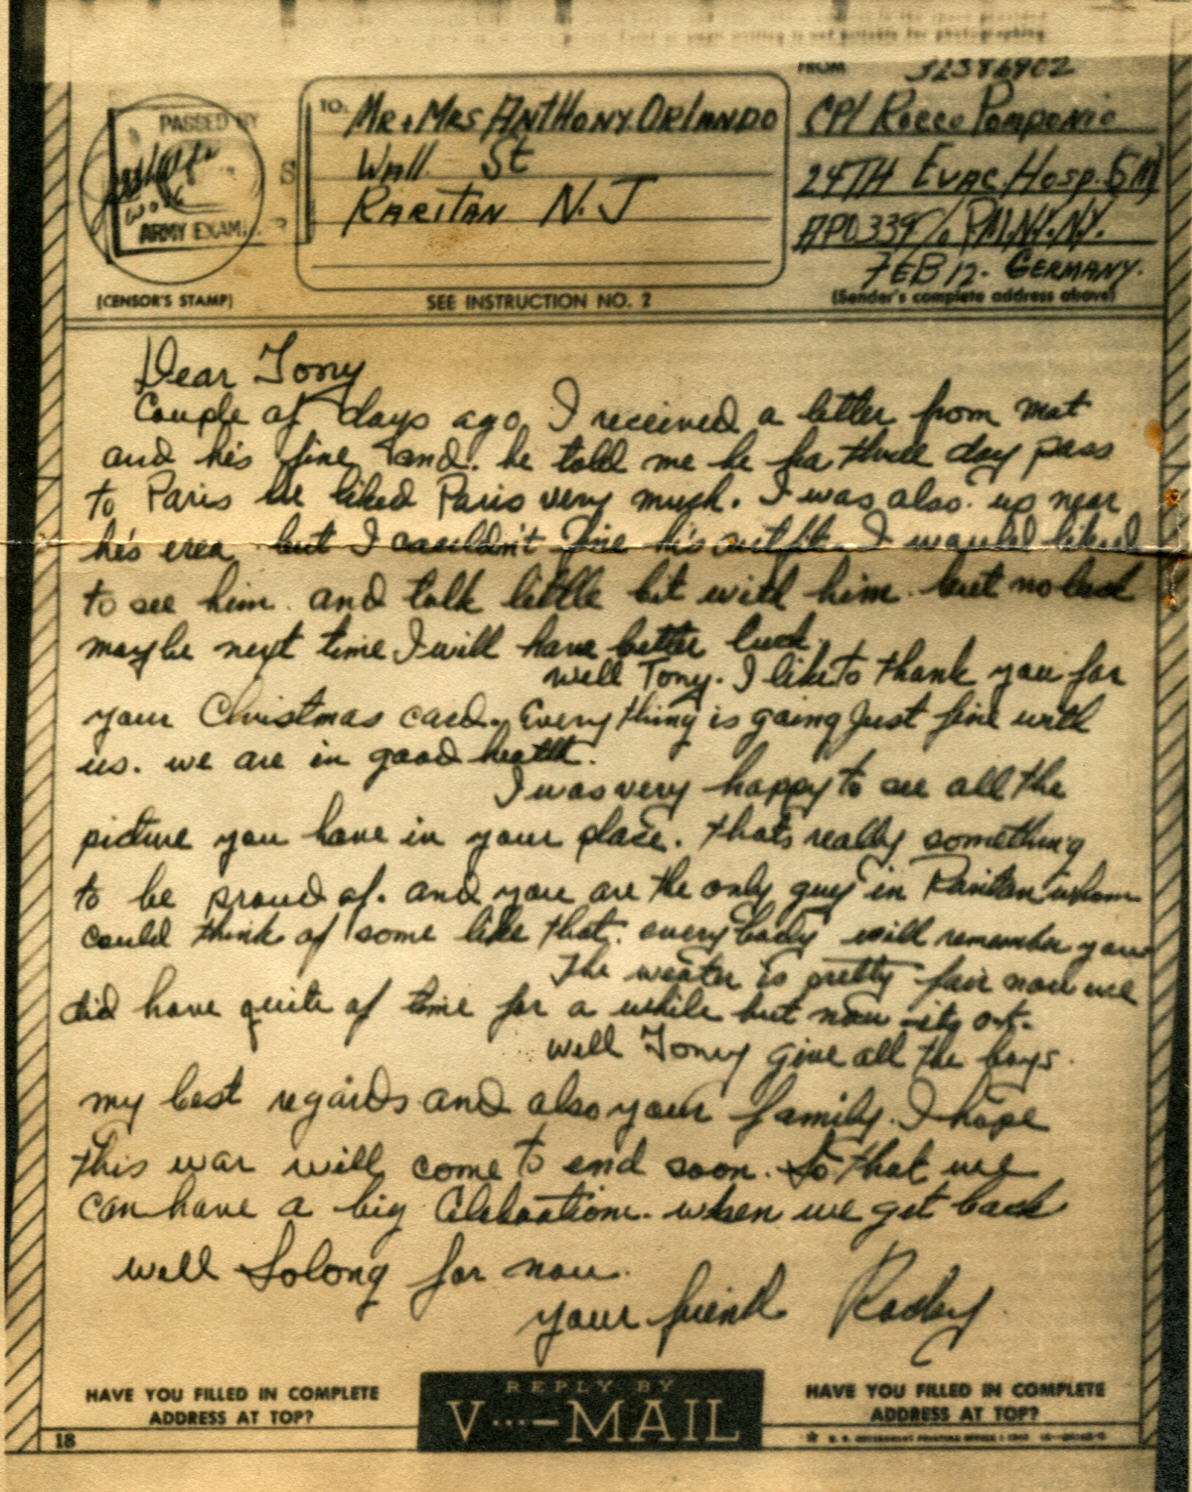 FROM 32386902
PASSED BY
ARMY EXAM.
(CENSOR'S STAMP)
TO.
MR + MRS ANTHONY ORLANDO
Wall St
RARITAN N.J
SEE INSTRUCTION NO. 2
CPl Rocco Pomponio
24TH EVAC. Hosp. SM
APO 339 % PM. N.Y. N.Y.
FEB 12 - GERMANY.
(Sender's complete address above)
Dear Tony
Couple of days ago I received a letter from mat
and his fine and. he told me he ha three day pass
to Paris he liked Paris very much. I was also. up near
he's erea but I couldn't fine his outfit. I would liked
to see him. and talk little bit with him. but no luck
maybe next time I will have better luck.
well Tony. I like to thank you for
your Christmas card. Every thing is going Just fine with
us. we are in good health.
I was very happy to see all the
picture you have in your place. that's really something
to be proud of. and you are the only guy in Raritan whom
could think of some like that. every body will remember you
The weater is pretty fair now we
did have quite of time for a while but now its o.k.
well Tony give all the boys.
my best regards and also your family. I hope
this war will come to end soon. So that we
can have a big Celebration. when we get back
well Solong for now.
your friend Rocky
HAVE YOU FILLED IN COMPLETE
ADDRESS AT TOP?
REPLY BY
V···—MAIL
HAVE YOU FILLED IN COMPLETE
ADDRESS AT TOP?
18